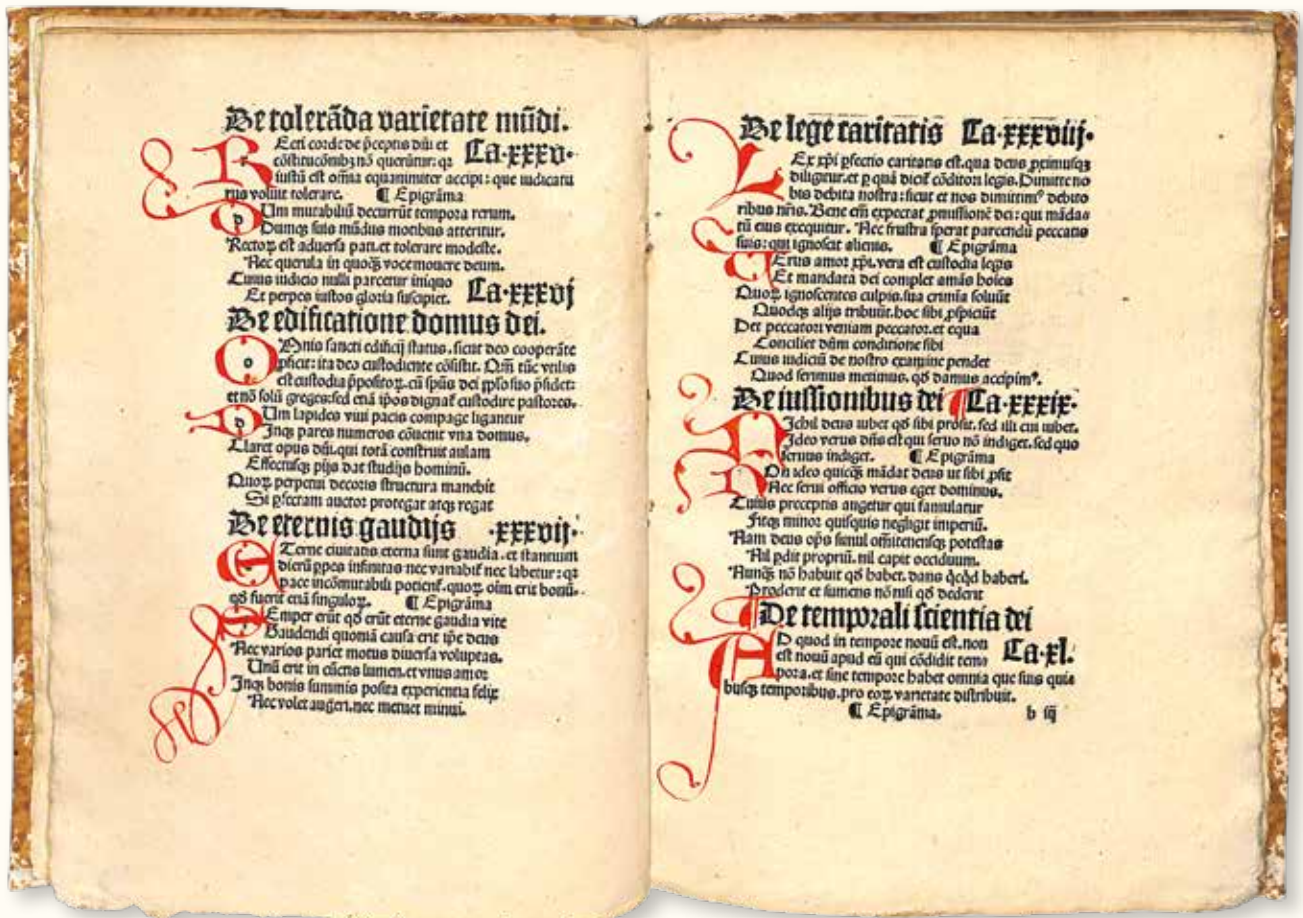 De tolerãda varietate mũdi.
REcti corde de p̃ceptis dñi et Ca.xxxv.
cõstitucõnibꝫ nõ querũtur: qꝛ
iustũ est om̃ia equanimiter accipi: que iudicatu
rus voluit tolerare. ¶ Epigrãma
dUm mutabiliũ decurrũt tempora rerum.
Dumqꝫ suis mũdus motibus atteritur.
Rectoꝝ est aduersa pati. et tolerare modeste.
Nec querula in quoqꝫ voce mouere deum.
Cuius iudicio nulli parcetur iniquo
Et perpes iustos gloria suscipiet. Ca.xxxvj
De edificatione domus dei.
OMnis sancti edificij status. sicut deo cooperãte
ꝓficit: ita deo custodiente cõsistit. Qm̃ tũc vtilis
est custodia p̃positoꝝ. cũ spũs dei ꝓplo suo p̃sidet:
et nõ soluȷ̃ greges: sed etiã ip̃os dignat̃ custodire pastores.
dUm lapides viui pacis compage ligantur
Inqꝫ pares numeros cõuenit vna domus.
Claret opus dñi. qui totã construit aulam
Effectusqꝫ pijs dat studijs hominũ.
Quoꝝ perpetui decoris structura manebit
Si ꝑfectam auctor protegat atqꝫ regat
De eternis gaudijs .xxxvij.
ETerne ciuitatis eterna sunt gaudia. et stantium
dierũ ꝑpes infinitas nec variabit̃ nec labetur: qꝛ
pace incõmutabili potient̃. quoꝝ oĩm erit bonũ.
qð fuerit etiã singuloꝝ. ¶ Epigrãma
SEmper erũt qð erũt eterne gaudia vite
Gaudendi quoniã causa erit ip̃e deus
Nec varios pariet motus diuersa voluptas.
Unũ erit in cũctis lumen. et vnus amor
Inqꝫ bonis summis posita experientia felix
Nec volet augeri. nec metuet minui.
De lege caritatis Ca.xxxviij.
LEx xp̃i ꝑfectio caritatis est. qua deus ꝓximusqꝫ
diligitur. et ꝑ quã dicit̃ cõditori legis. Dimitte no
bis debita nostra: sicut et nos dimittimꝰ debito
ribus nr̃is. Bene em̃ expectat ꝓmissionẽ dei: qui mãda
tũ eius exequitur. Nec frustra sperat parcendũ peccatis
suis: qui ignoscit alienis. ¶ Epigrãma
UErus amor xp̃i. vera est custodia legis
Et mandata dei complet amãs hoĩes
Quoꝝ ignoscentes culpis. sua crimĩa soluũt
Quodqꝫ alijs tribuũt. hoc sibi ꝓspiciũt
Det peccatori veniam peccator. et equa
Conciliet dñm conditione sibi
Cuius iudiciũ de nostro examine pendet
Quod serimus metimus. qð damus accipimꝰ.
De iussionibus dei ¶ Ca.xxxix.
NIchil deus iubet qð sibi prosit. sed illi cui iubet.
Ideo verus dñs est qui seruo nõ indiget. sed quo
seruus indiget. ¶ Epigrãma
NOn ideo quicqꝫ mãdat deus ut sibi ꝓsit
Nec serui officio verus eget dominus.
Cuius preceptis augetur qui famulatur
Fitqꝫ minor quisquis negligit imperiũ.
Nam deus oꝑs simul om̃itenensqꝫ potestas
Nil ꝑdit propriũ. nil capit occiduum.
Nunqꝫ nõ habuit qð habet. dans q̃cq̃d haberi.
Proderit et sumens nõ nisi qð dederit
De temporali scientia dei
AD quod in tempore nouũ est. non Ca.xl.
est nouũ apud eũ qui cõdidit tem
pora. et sine tempore habet omnia que suis qui
busqꝫ temporibus. pro eoꝝ varietate distribuit.
¶ Epigrãma. b iij